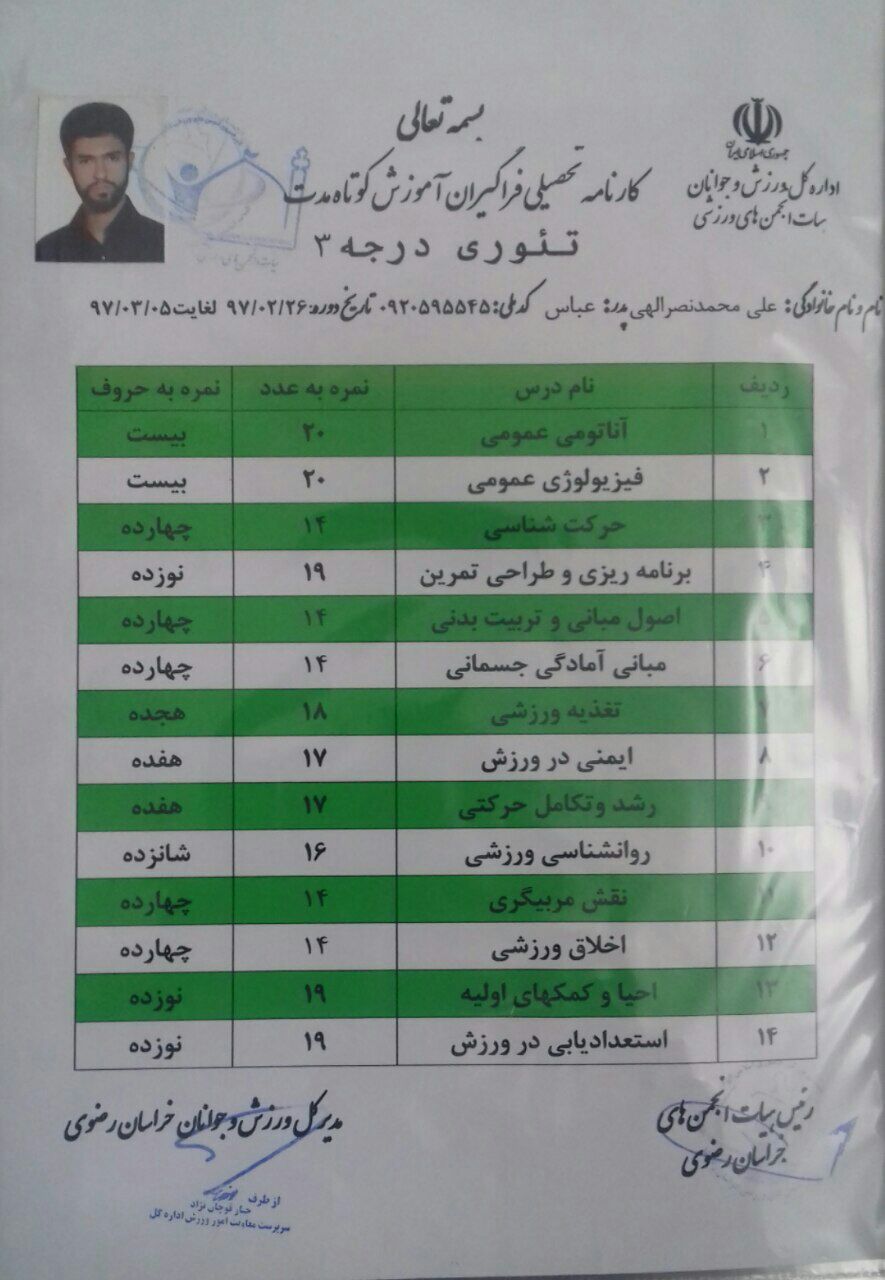 بسمه تعالی
جمهوری اسلامی ایران
اداره کل ورزش و جوانان
هیات انجمن های ورزشی
کارنامه تحصیلی فراگیران آموزش کوتاه مدت
تئوری درجه ۳
نام و نام خانوادگی: علی محمدنصرالهی پدر: عباس کد ملی: ۰۹۲۰۵۹۵۵۴۵ تاریخ دوره: ۹۷/۰۲/۲۶ لغایت ۹۷/۰۳/۰۵
ردیف نام درس نمره به عدد نمره به حروف
۱ آناتومی عمومی ۲۰ بیست
۲ فیزیولوژی عمومی ۲۰ بیست
۳ حرکت شناسی ۱۴ چهارده
۴ برنامه ریزی و طراحی تمرین ۱۹ نوزده
۵ اصول مبانی و تربیت بدنی ۱۴ چهارده
۶ مبانی آمادگی جسمانی ۱۴ چهارده
۷ تغذیه ورزشی ۱۸ هجده
۸ ایمنی در ورزش ۱۷ هفده
۹ رشد وتکامل حرکتی ۱۷ هفده
۱۰ روانشناسی ورزشی ۱۶ شانزده
۱۱ نقش مربیگری ۱۴ چهارده
۱۲ اخلاق ورزشی ۱۴ چهارده
۱۳ احیا و کمکهای اولیه ۱۹ نوزده
۱۴ استعدادیابی در ورزش ۱۹ نوزده
رئیس هیات انجمن های
خراسان رضوی
مدیرکل ورزش و جوانان خراسان رضوی
از طرف
قوچان نژاد
سرپرست معاونت امور ورزش اداره کل